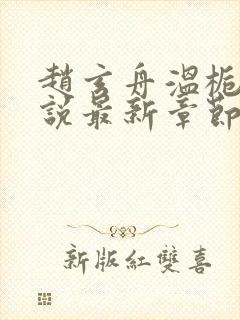 趙玄舟溫梔
說最新章節
新版紅雙喜